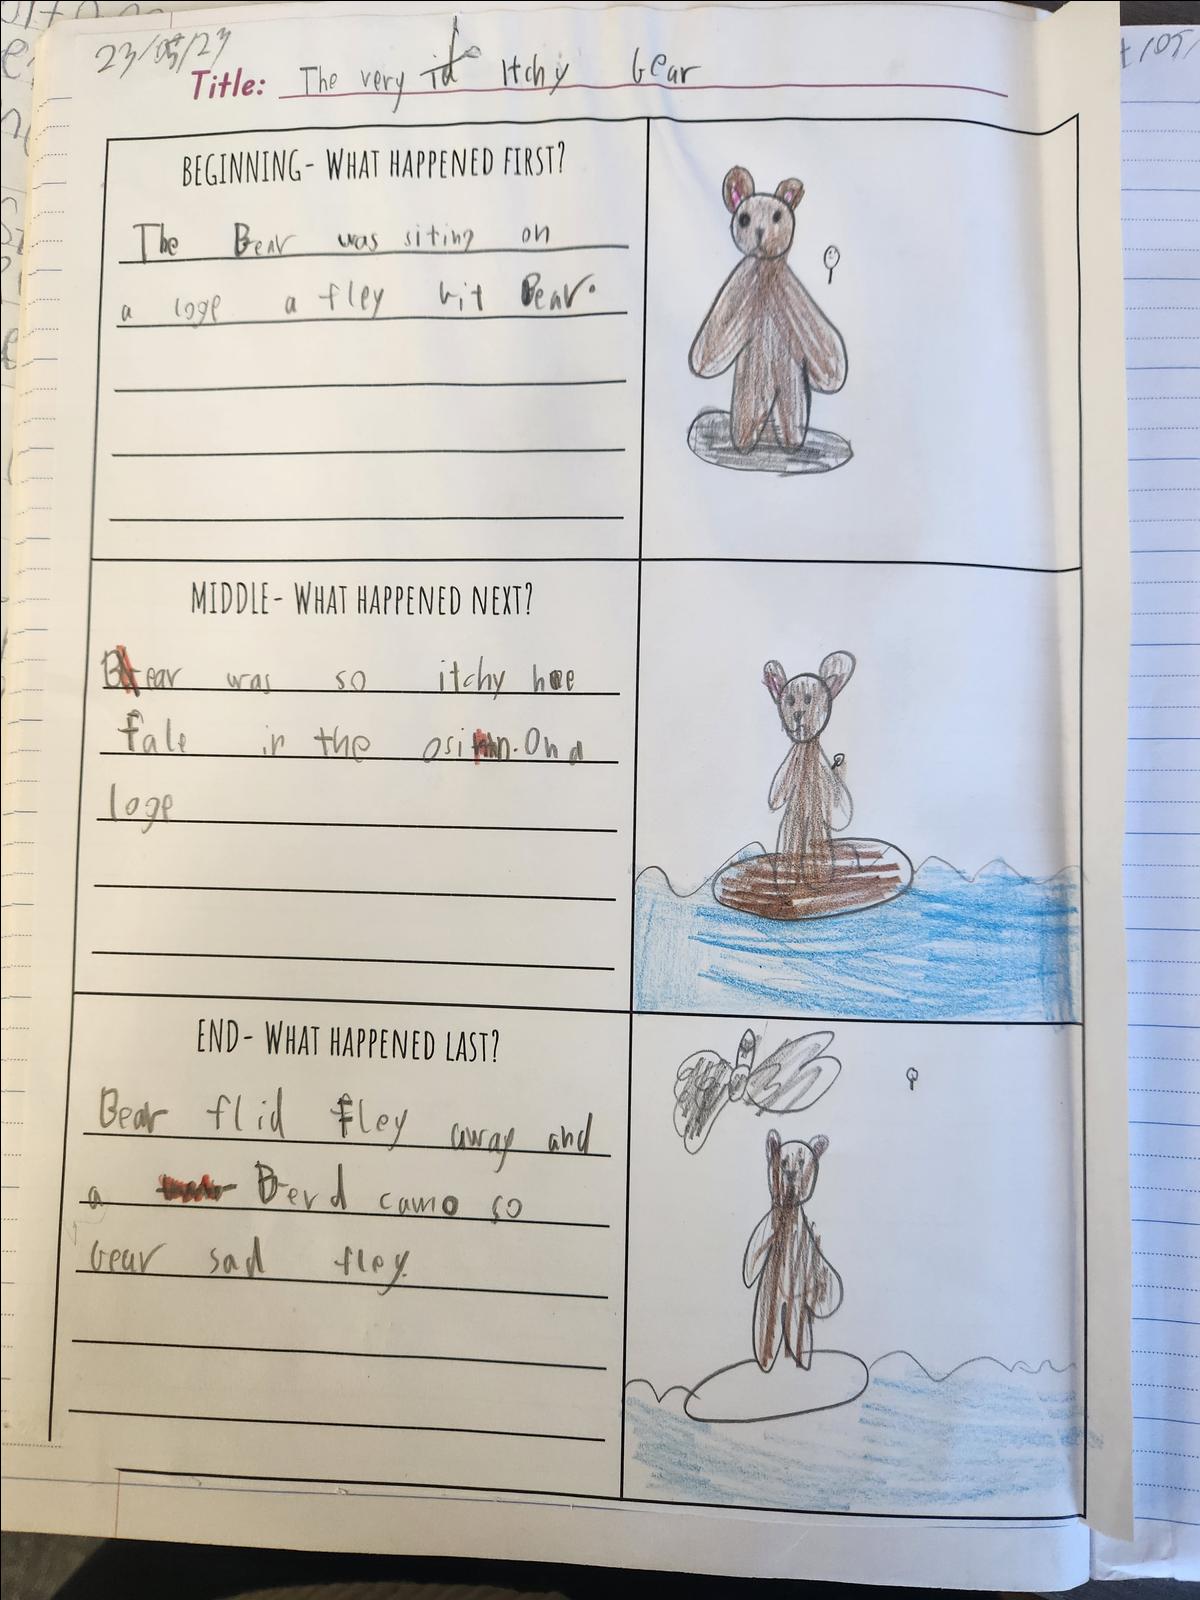 23/05/23
Title: The very Itchy bear
BEGINNING- WHAT HAPPENED FIRST?
The Bear was siting on
a loge a fley bit Bear.
MIDDLE- WHAT HAPPENED NEXT?
Bear was so itchy hee
fale in the osinn. On a
loge
END- WHAT HAPPENED LAST?
Bear flid fley away and
a Berd camo so
bear sad fley.